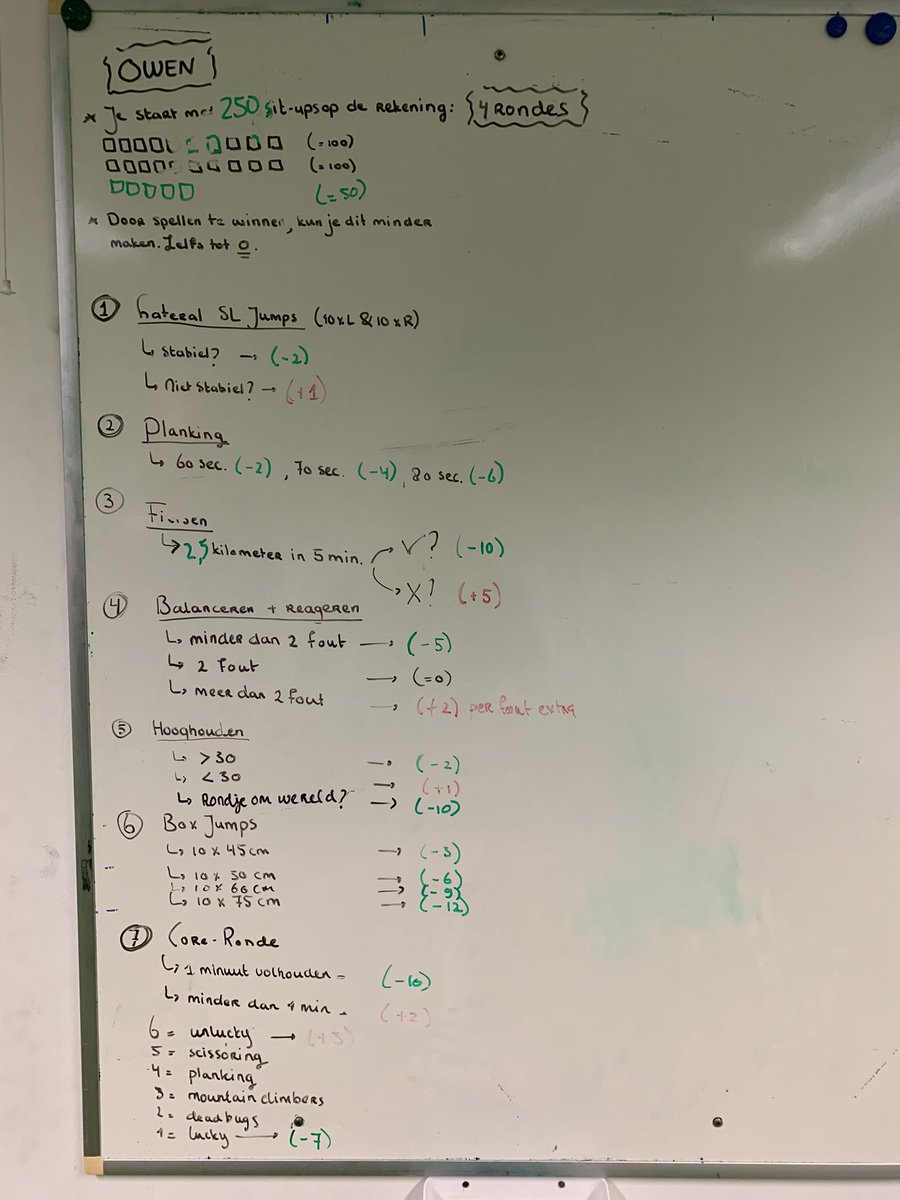 OWEN
* Je start met 250 sit-ups op de rekening: 4 RONDES
(=100)
(=100)
(=50)
* Door spellen te winnen, kun je dit minder
maken. Zelfs tot 0.
1 Lateral SL Jumps (10xL & 10xR)
↳ Stabiel? → (-2)
↳ Niet stabiel? → (+1)
2 Planking
↳ 60 sec. (-2), 70 sec. (-4), 80 sec. (-6)
3
↳ 2,5 kilometer in 5 min. V? (-10)
X? (+5)
4 Balanceren + Reageren
↳ minder dan 2 fout → (-5)
↳ 2 fout → (=0)
↳ meer dan 2 fout → (+2) per fout extra
5 Hooghouden
↳ >30 → (-2)
↳ <30 → (+1)
↳ Rondje om wereld? → (-10)
6 Box Jumps
↳ 10 x 45cm → (-3)
↳ 10 x 50 cm → (-6)
↳ 10 x 60 cm → (-9)
↳ 10 x 75 cm → (-12)
7 Core-Ronde
↳ 1 minuut volhouden = (-10)
↳ minder dan 1 min = (+2)
6 = unlucky → (+3)
5 = scissoring
4 = planking
3 = mountain climbers
2 = deadbugs
1 = lucky → (-7)